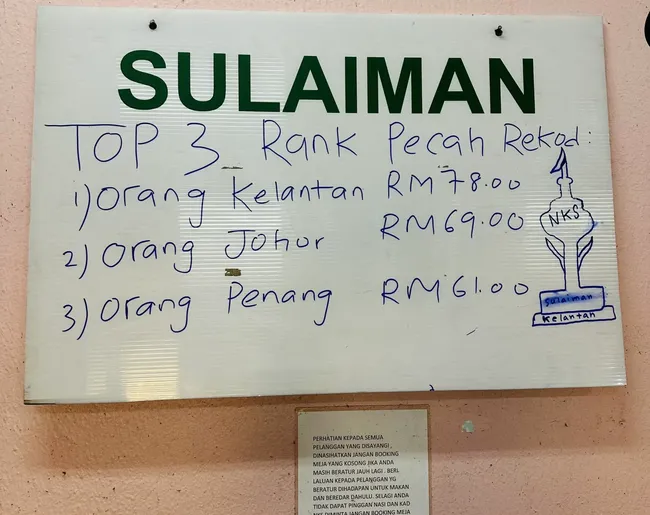 SULAIMAN
TOP 3 Rank Pecah Rekod:
1) Orang Kelantan RM78.00
2) Orang Johor RM69.00
3) Orang Penang RM61.00
NKS
Sulaiman
Kelantan
PERHATIAN KEPADA SEMUA
PELANGGAN YANG DISAYANGI ,
DINASIHATKAN JANGAN BOOKING
MEJA YANG KOSONG JIKA ANDA
MASIH BERATUR JAUH LAGI . BERI
LALUAN KEPADA PELANGGAN YG
BERATUR DIHADAPAN UNTUK MAKAN
DAN BEREDAR DAHULU. SELAGI ANDA
TIDAK DAPAT PINGGAN NASI DAN KAD
NKS DIMINTA JANGAN BOOKING MEJA